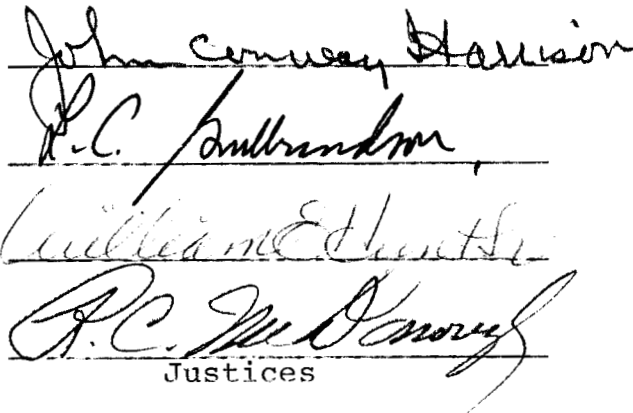 John Conway Harrison
L. C. Gulbrandson,
William E. Hunt Sr.
R. C. McDonough
Justices